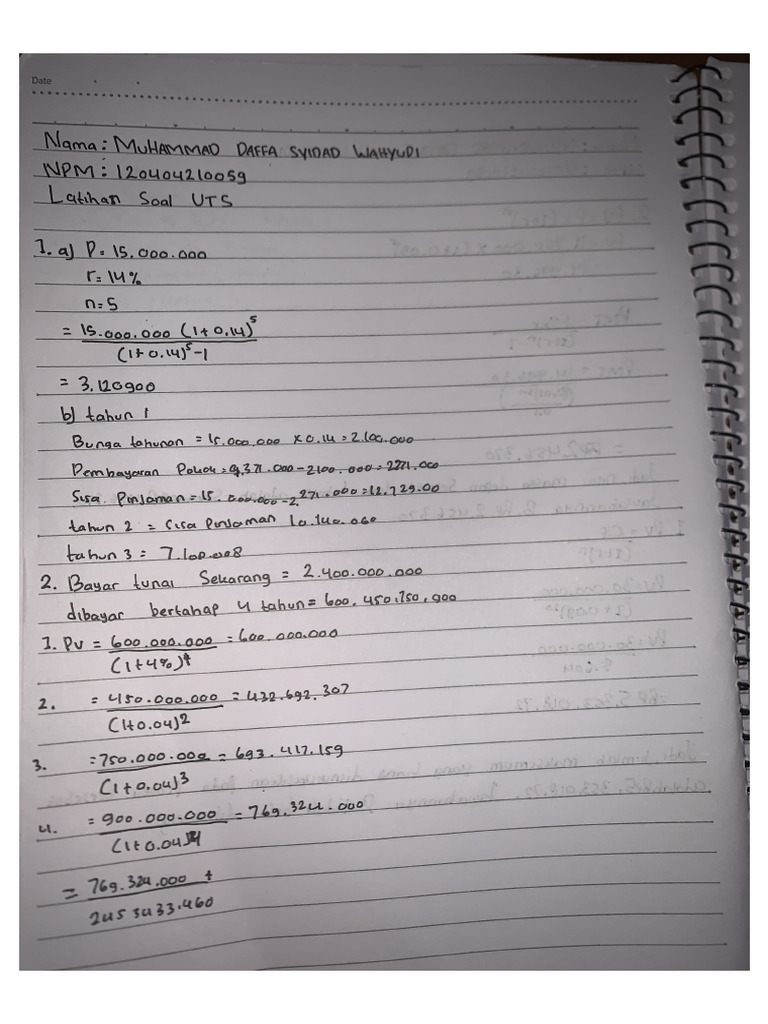 Date
Nama: MUHAMMAD DAFFA SYIDAD WAHYUDI
NPM: 120404210059
Latihan Soal UTS
1. a) P= 15.000.000
r= 14%
n= 5
= 15.000.000 (1+0.14)^5
(1+0.14)^5-1
= 3.120900
b) tahun 1
Bunga tahunan = 15.000.000 x 0.14 = 2.100.000
Pembayaran Pokok = 4,371.000-2100.000= 2271.000
Sisa Pinjaman = 15.000.000-2,271.000=12.729.00
tahun 2 = Sisa Pinjaman 10.140.060
tahun 3 = 7.100.008
2. Bayar tunai Sekarang = 2.400.000.000
dibayar bertahap 4 tahun= 600.450.750.900
1. PV = 600.000.000 = 600.000.000
(1+4%)^4
2. = 450.000.000 = 432.692.307
(1+0.04)2
3. =750.000.000 = 693.417.159
(1+0.04)3
4. = 900.000.000 = 769.324.000
(1+0.04)
= 769.324.000 +
2453433.460